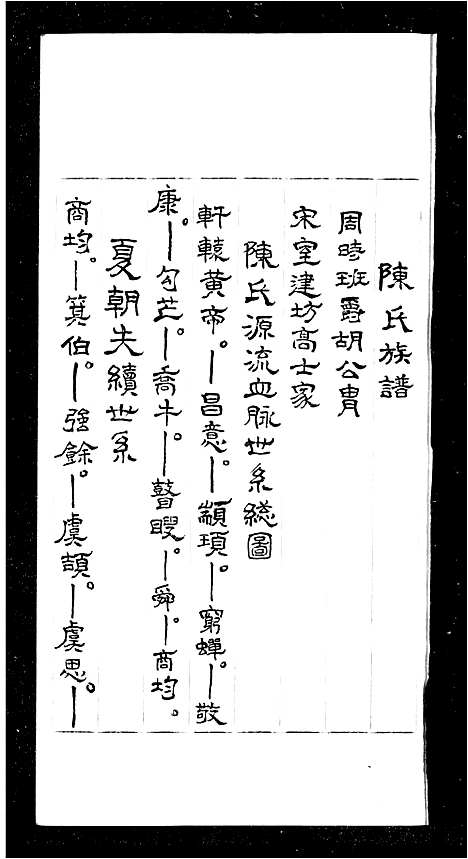 陳氏族譜
周時班爵胡公胄
宋室建坊高士家
陳氏源流血脉世系總圖
軒轅黃帝。—昌意。—顓頊。—窮蟬。—敬
康。—句芒。—喬牛。—瞽瞍。—舜。—商均。
夏朝失續世系
商均。—箕伯。—強餘。—虞頡。—虞思。—